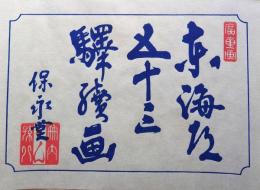 東海道
五十三
驛續画
保永堂
廣重画